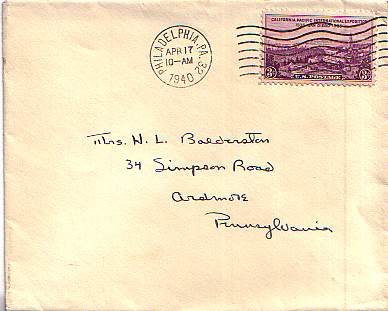 PHILADELPHIA, PA. 32
APR 17
10-AM
1940
CALIFORNIA PACIFIC INTERNATIONAL EXPOSITION
3¢ U.S. POSTAGE 3¢
Mrs. H. L. Balderston
34 Simpson Road
Ardmore
Pennsylvania